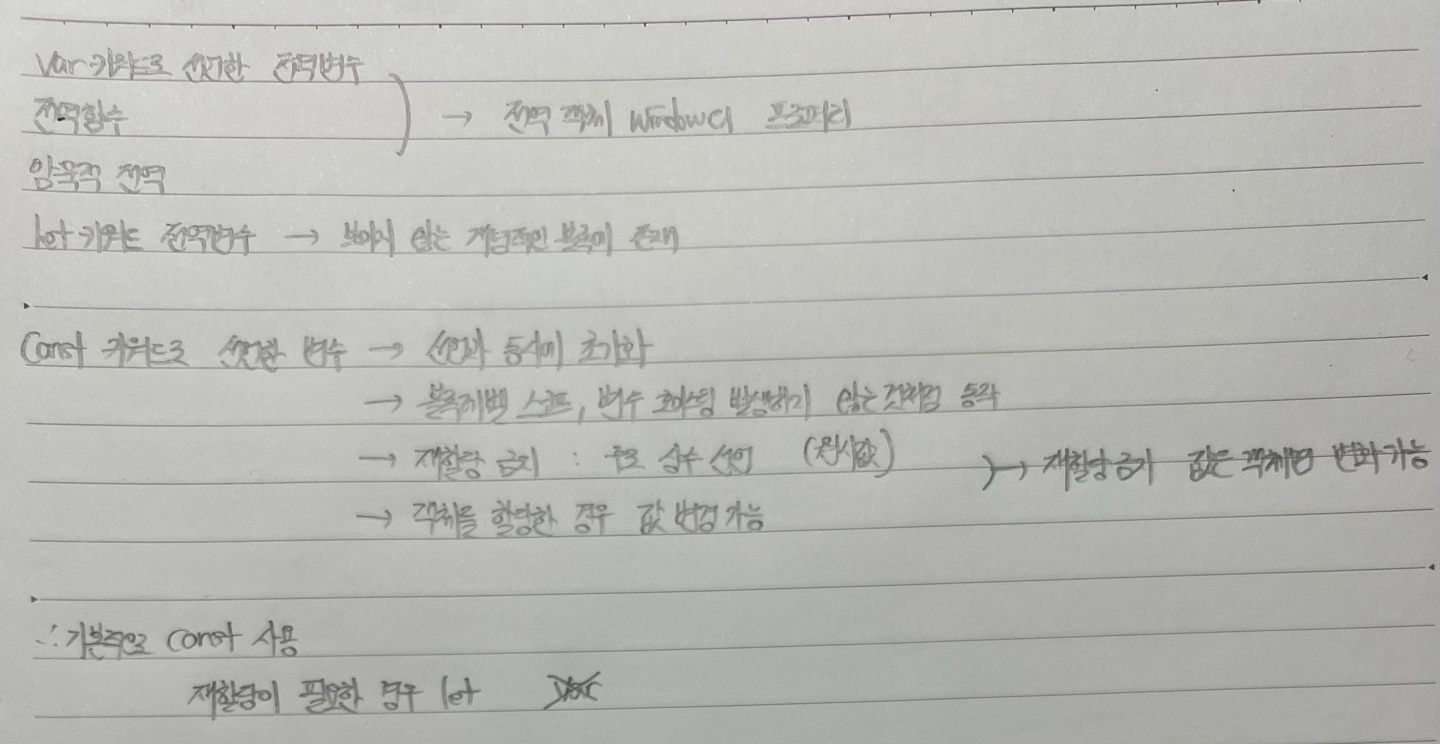 var 키워드로 선언한 전역변수
전역함수 → 전역 객체 window의 프로퍼티
암묵적 전역
let 키워드 전역변수 → 보이지 않는 개념적인 블록에 존재
const 키워드로 선언한 변수 → 선언과 동시에 초기화
→ 블록레벨 스코프, 변수 호이스팅 발생하지 않는 것처럼 동작
→ 재할당 금지 : 주로 상수 선언 (원시값) → 재할당 금지 값은 객체면 변화 가능
→ 객체를 할당한 경우 값 변경 가능
∴ 기본적으로 const 사용
재할당이 필요한 경우 let var